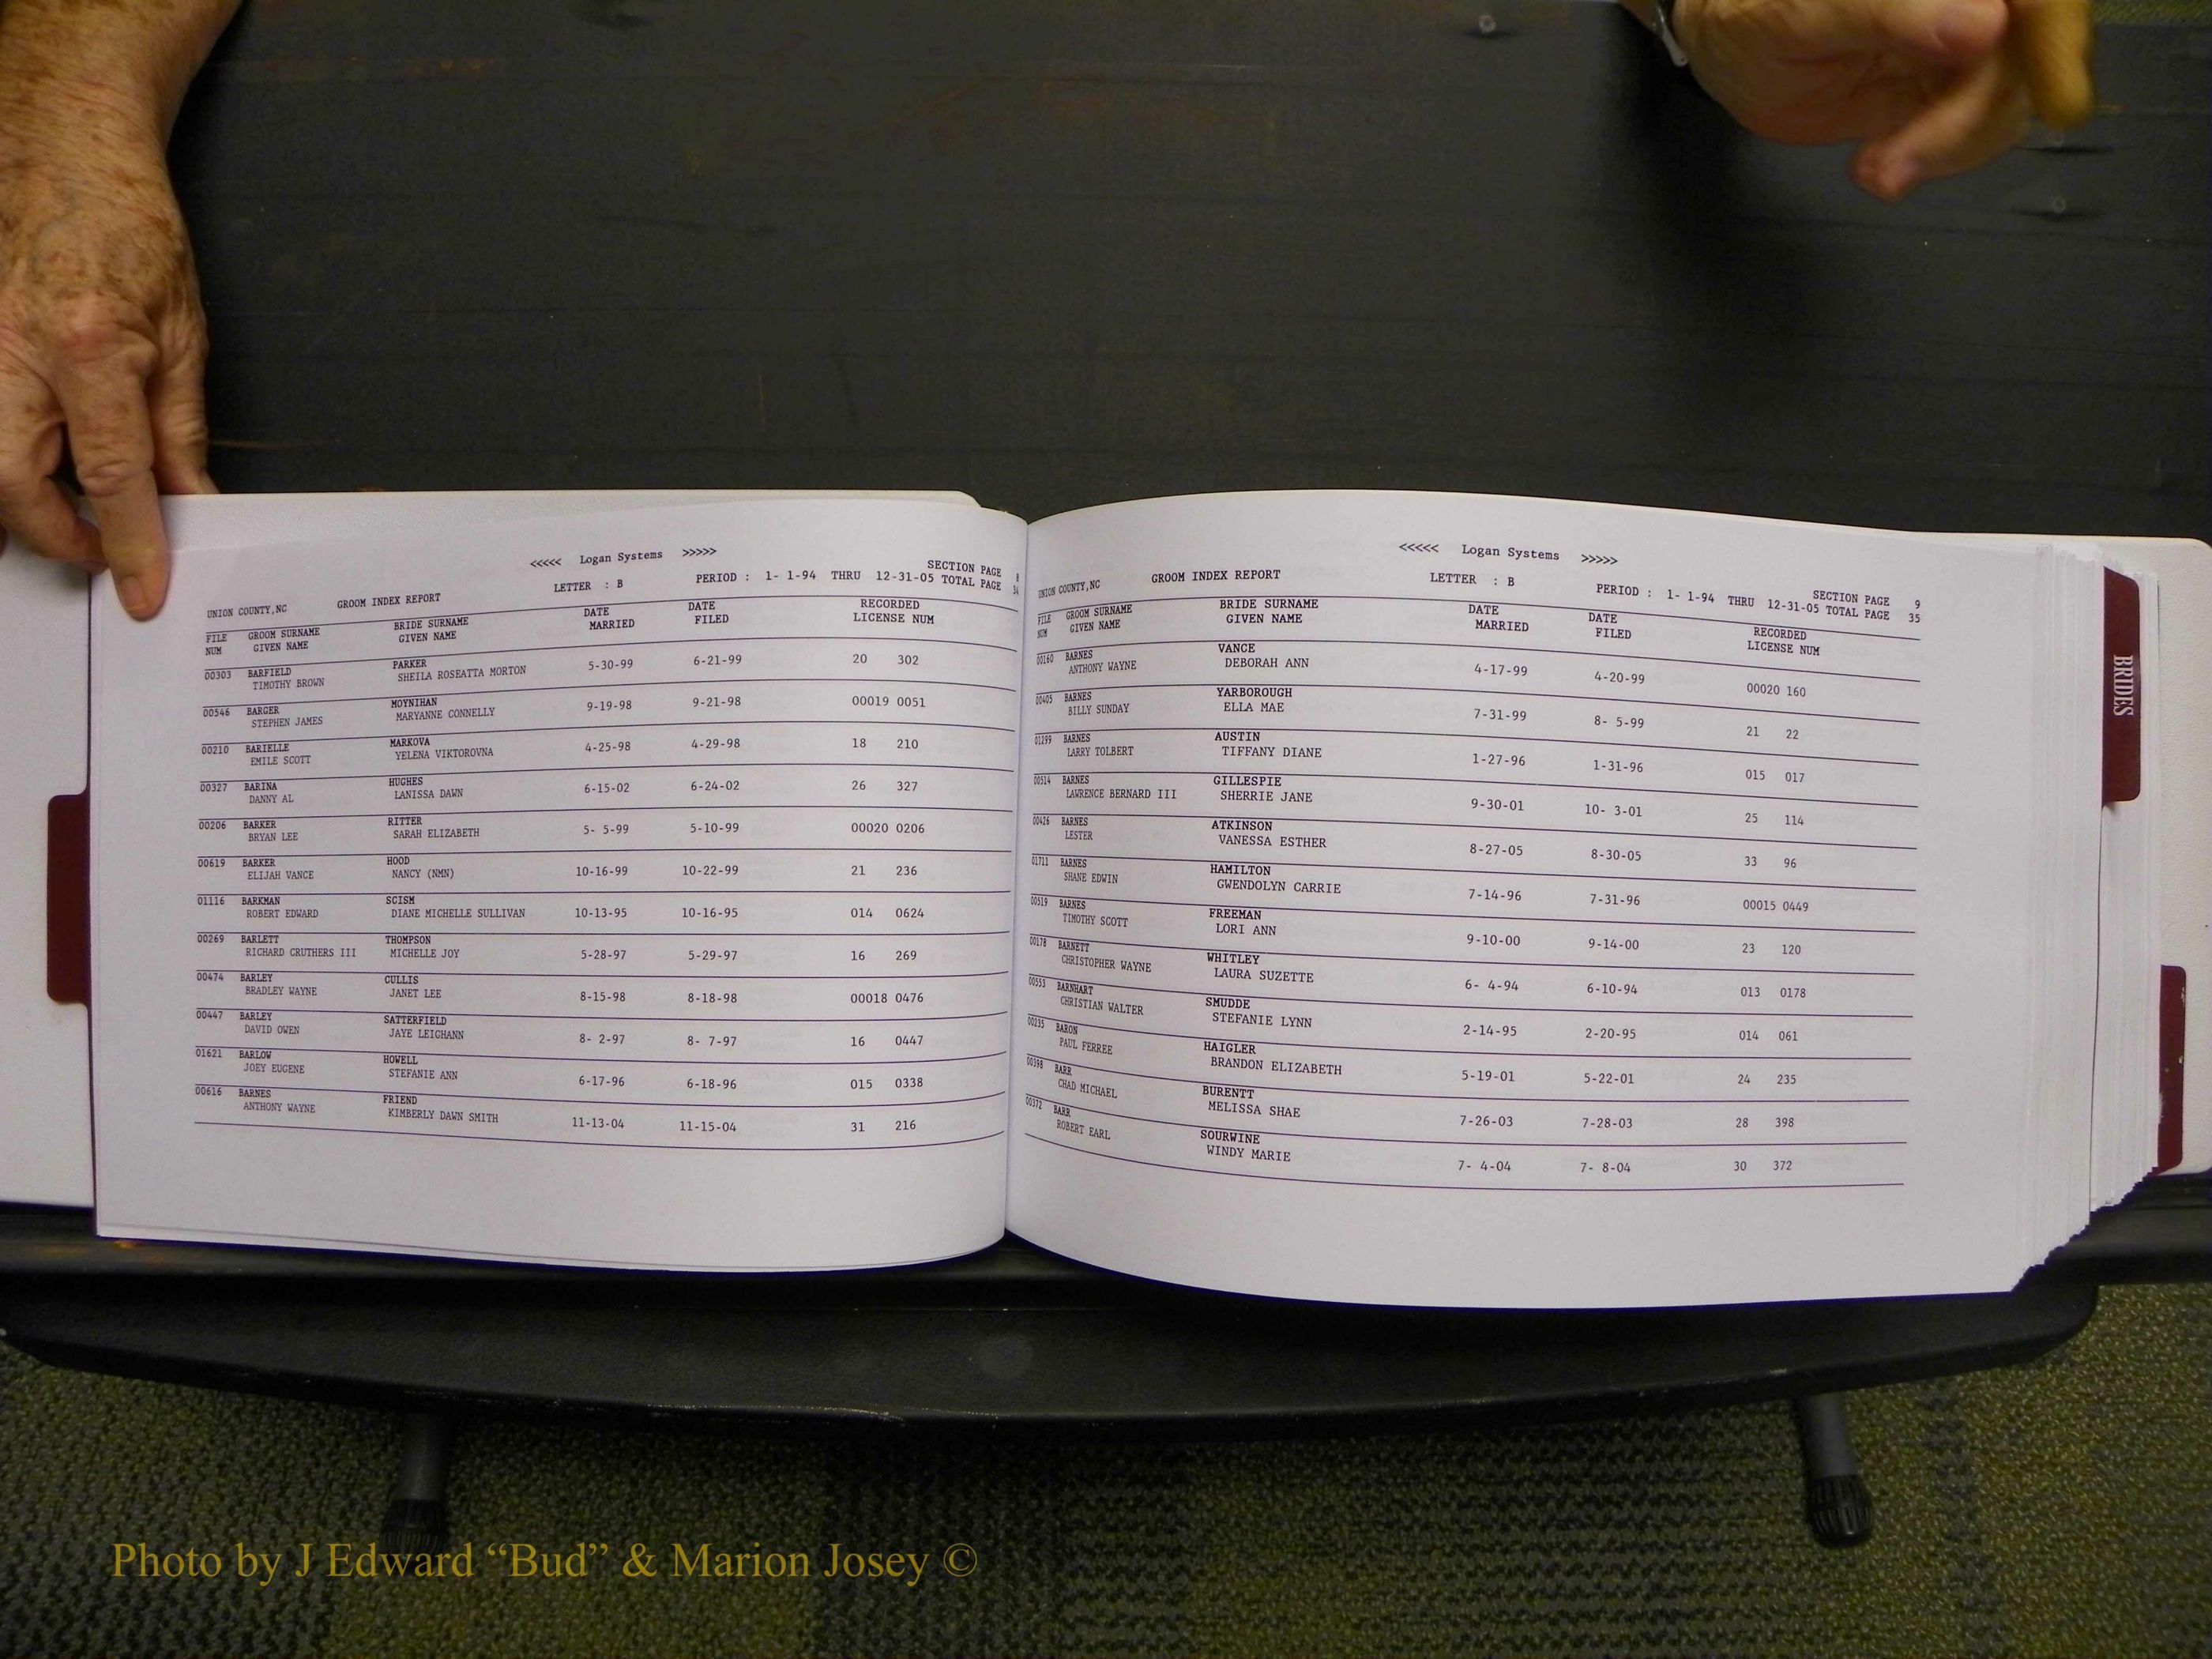 <<<<< Logan Systems >>>>>
SECTION PAGE 8
UNION COUNTY,NC GROOM INDEX REPORT LETTER : B PERIOD : 1- 1-94 THRU 12-31-05 TOTAL PAGE 34
FILE GROOM SURNAME BRIDE SURNAME DATE DATE RECORDED
NUM GIVEN NAME GIVEN NAME MARRIED FILED LICENSE NUM
00303 BARFIELD PARKER 5-30-99 6-21-99 20 302
TIMOTHY BROWN SHEILA ROSEATTA MORTON
00546 BARGER MOYNIHAN 9-19-98 9-21-98 00019 0051
STEPHEN JAMES MARYANNE CONNELLY
00210 BARIELLE MARKOVA 4-25-98 4-29-98 18 210
EMILE SCOTT YELENA VIKTOROVNA
00327 BARINA HUGHES 6-15-02 6-24-02 26 327
DANNY AL LANISSA DAWN
00206 BARKER RITTER 5- 5-99 5-10-99 00020 0206
BRYAN LEE SARAH ELIZABETH
00619 BARKER HOOD 10-16-99 10-22-99 21 236
ELIJAH VANCE NANCY (NMN)
01116 BARKMAN SCISM 10-13-95 10-16-95 014 0624
ROBERT EDWARD DIANE MICHELLE SULLIVAN
00269 BARLETT THOMPSON 5-28-97 5-29-97 16 269
RICHARD CRUTHERS III MICHELLE JOY
00474 BARLEY CULLIS 8-15-98 8-18-98 00018 0476
BRADLEY WAYNE JANET LEE
00447 BARLEY SATTERFIELD 8- 2-97 8- 7-97 16 0447
DAVID OWEN JAYE LEIGHANN
01621 BARLOW HOWELL 6-17-96 6-18-96 015 0338
JOEY EUGENE STEFANIE ANN
00616 BARNES FRIEND 11-13-04 11-15-04 31 216
ANTHONY WAYNE KIMBERLY DAWN SMITH
<<<<< Logan Systems >>>>>
SECTION PAGE 9
UNION COUNTY,NC GROOM INDEX REPORT LETTER : B PERIOD : 1- 1-94 THRU 12-31-05 TOTAL PAGE 35
FILE GROOM SURNAME BRIDE SURNAME DATE DATE RECORDED
NUM GIVEN NAME GIVEN NAME MARRIED FILED LICENSE NUM
00160 BARNES VANCE 4-17-99 4-20-99 00020 160
ANTHONY WAYNE DEBORAH ANN
00405 BARNES YARBOROUGH 7-31-99 8- 5-99 21 22
BILLY SUNDAY ELLA MAE
01299 BARNES AUSTIN 1-27-96 1-31-96 015 017
LARRY TOLBERT TIFFANY DIANE
00514 BARNES GILLESPIE 9-30-01 10- 3-01 25 114
LAWRENCE BERNARD III SHERRIE JANE
00426 BARNES ATKINSON 8-27-05 8-30-05 33 96
LESTER VANESSA ESTHER
01711 BARNES HAMILTON 7-14-96 7-31-96 00015 0449
SHANE EDWIN GWENDOLYN CARRIE
00519 BARNES FREEMAN 9-10-00 9-14-00 23 120
TIMOTHY SCOTT LORI ANN
00178 BARNETT WHITLEY 6- 4-94 6-10-94 013 0178
CHRISTOPHER WAYNE LAURA SUZETTE
00553 BARNHART SMUDDE 2-14-95 2-20-95 014 061
CHRISTIAN WALTER STEFANIE LYNN
00235 BARON HAIGLER 5-19-01 5-22-01 24 235
PAUL FERREE BRANDON ELIZABETH
00398 BARR BURENTT 7-26-03 7-28-03 28 398
CHAD MICHAEL MELISSA SHAE
00372 BARR SOURWINE 7- 4-04 7- 8-04 30 372
ROBERT EARL WINDY MARIE
BRIDES
Photo by J Edward “Bud” & Marion Josey ©